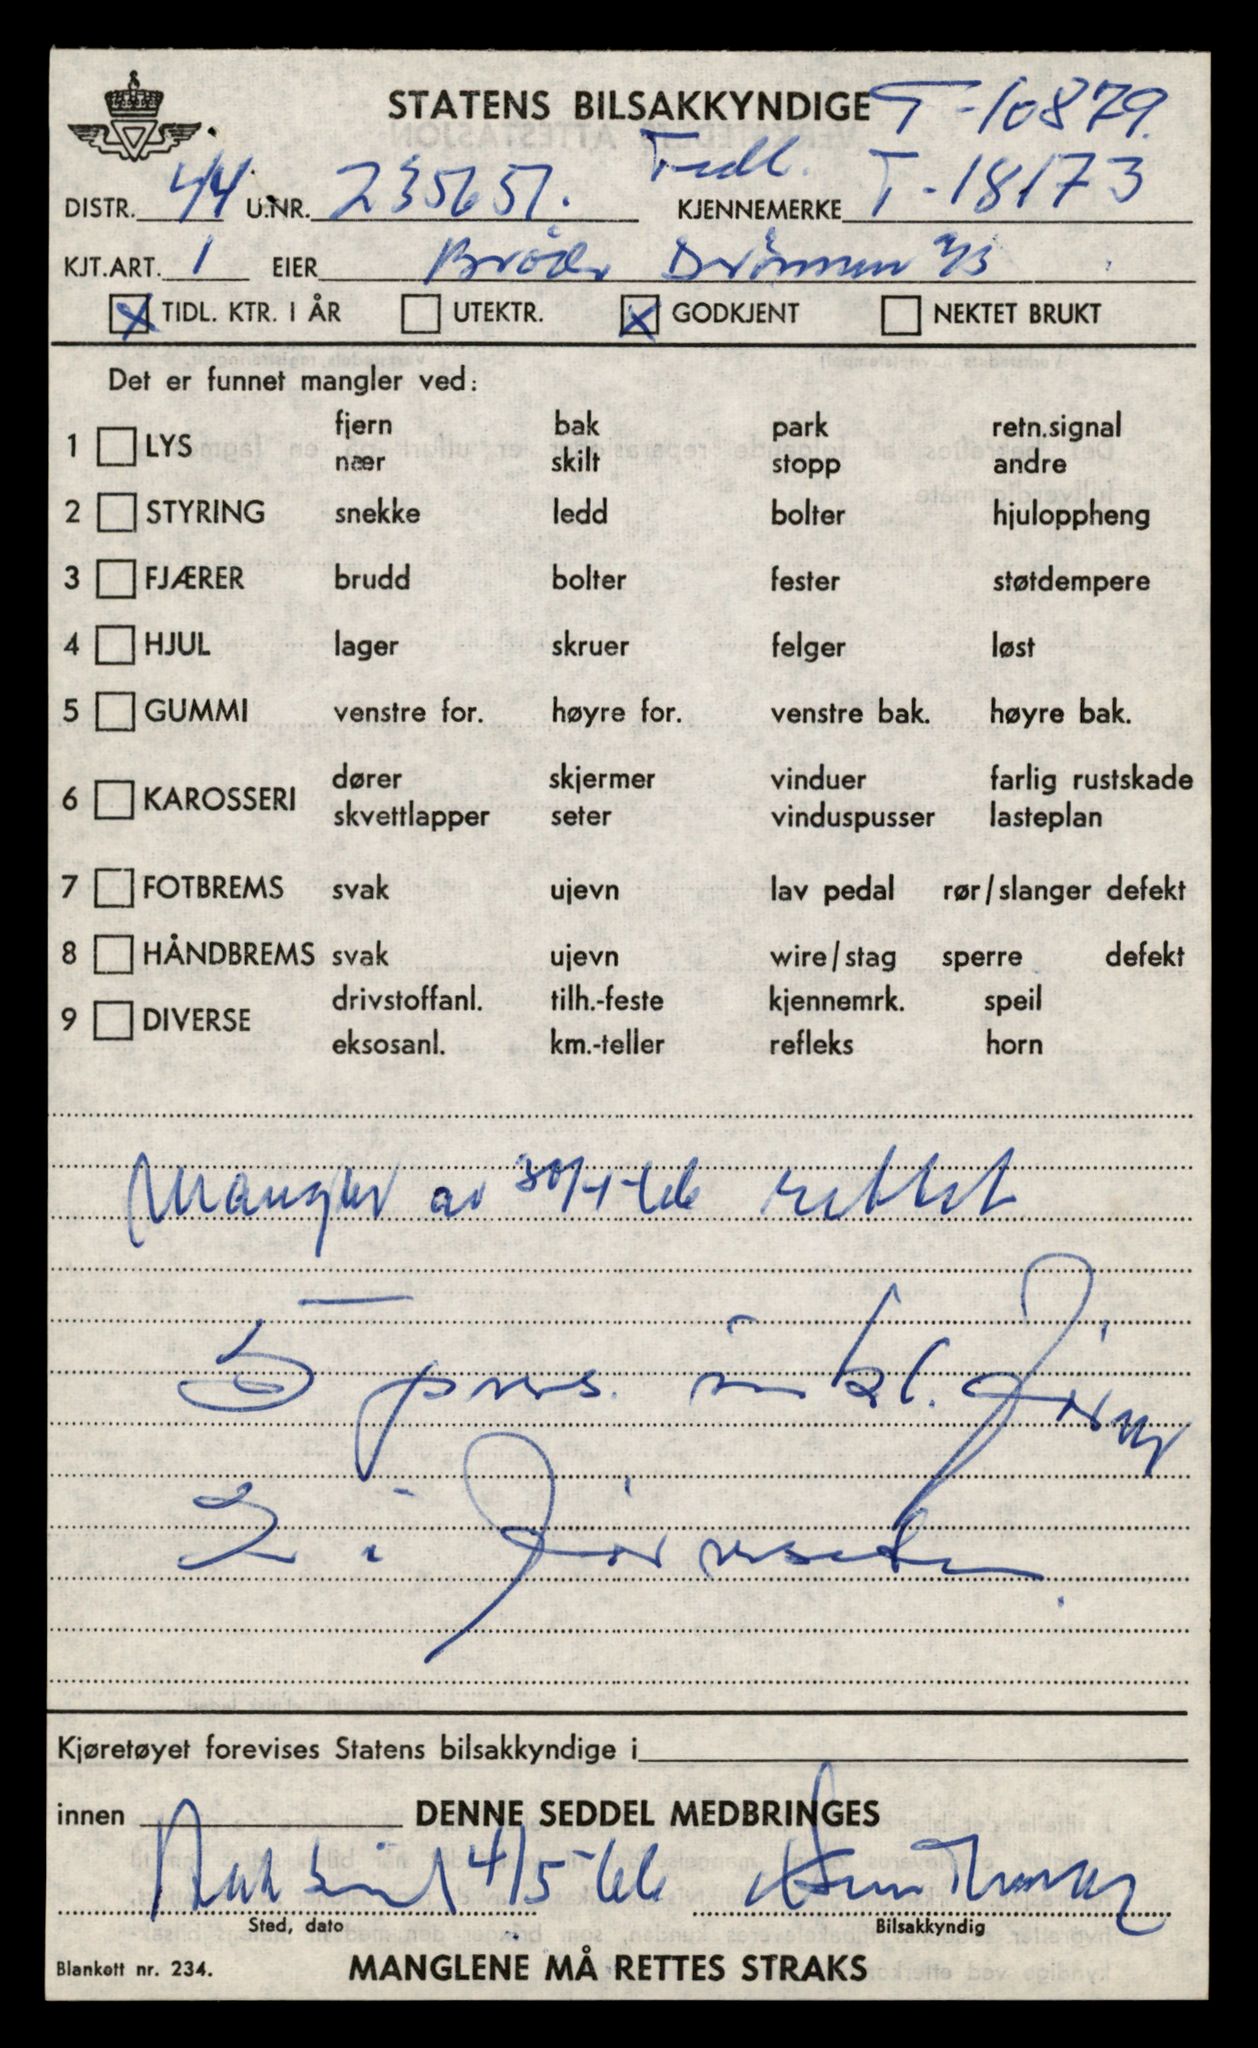 STATENS BILSAKKYNDIGE T-10879.
Tidl.
DISTR. 44 U.NR. 235651. KJENNEMERKE T-18173
KJT.ART. 1 EIER Brødr Drønnen
TIDL. KTR. I ÅR UTEKTR. GODKJENT NEKTET BRUKT
Det er funnet mangler ved:
fjern bak park retn.signal
1 LYS
nær skilt stopp andre
2 STYRING snekke ledd bolter hjuloppheng
3 FJÆRER brudd bolter fester støtdempere
4 HJUL lager skruer felger løst
5 GUMMI venstre for. høyre for. venstre bak. høyre bak.
dører skjermer vinduer farlig rustskade
6 KAROSSERI
skvettlapper seter vinduspusser lasteplan
7 FOTBREMS svak ujevn lav pedal rør/slanger defekt
8 HÅNDBREMS svak ujevn wire/stag sperre defekt
drivstoffanl. tilh.-feste kjennemrk. speil
9 DIVERSE
eksosanl. km.-teller refleks horn
Mangler av 30/4-66 rettet
5 pers. inkl. fører
2 i førersetet.
Kjøretøyet forevises Statens bilsakkyndige i
innen DENNE SEDDEL MEDBRINGES
4/5-66
Sted, dato Bilsakkyndig
Blankett nr. 234. MANGLENE MÅ RETTES STRAKS